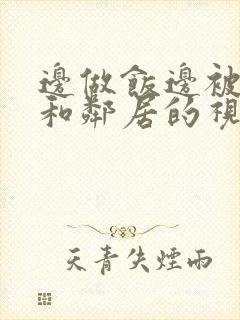 邊做飯邊被
和鄰居的視
天青失煙雨